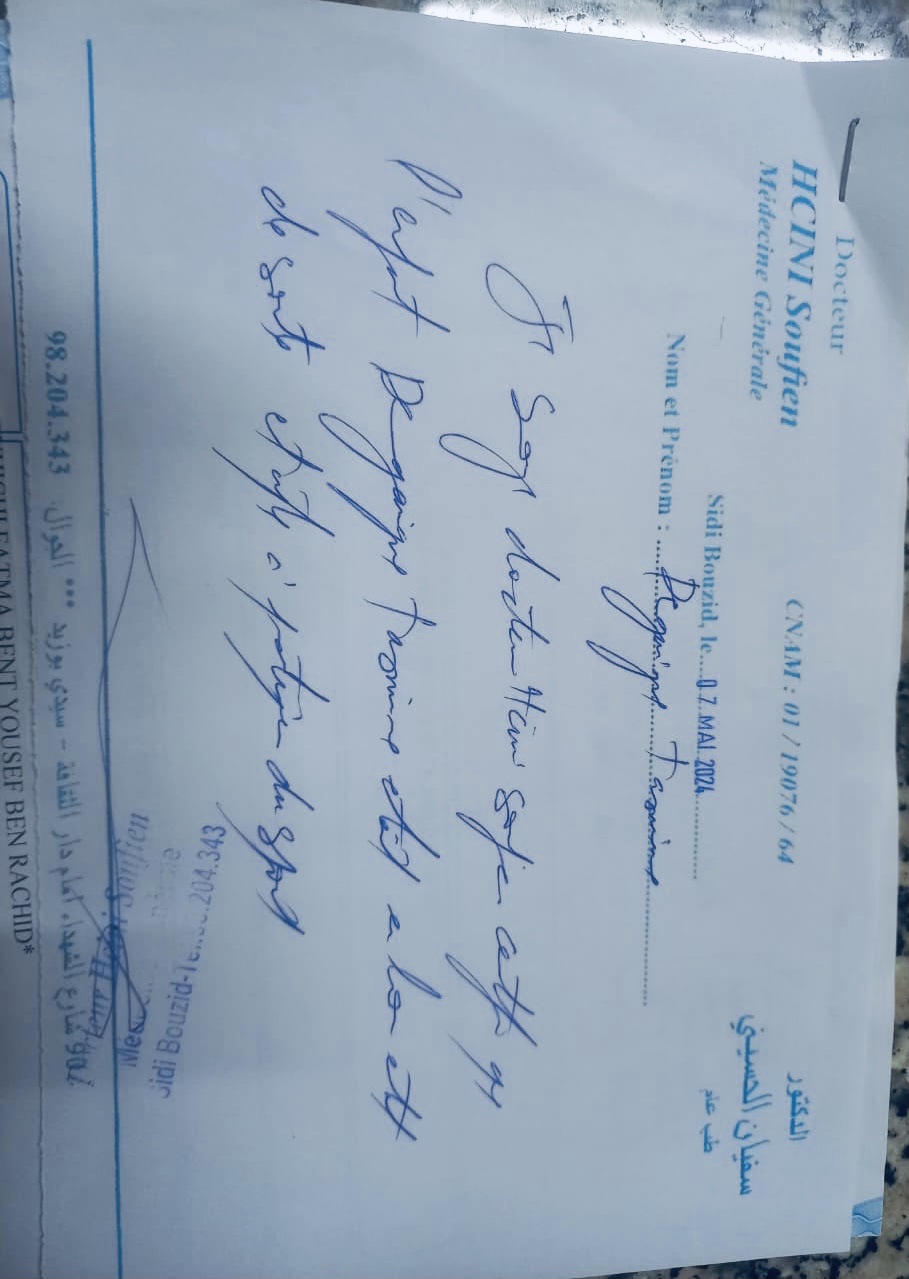 Docteur
HCINI Soufien
Médecine Générale
CNAM : 01 / 19076 / 64
الدكتور
سفيان الحسيني
طب عام
Sidi Bouzid, le.... 0 7 MAI 2024
Nom et Prénom :
Je Soussigné docteur Hcini Soufien certifie que
l'enfant étant en bon état
de santé et apte à pratiquer du sport
Soufien
Sidi Bouzid-Tel: 98.204.343
شارع الشهداء أمام دار الثقافة - سيدي بوزيد *** الجوال : 98.204.343
FATMA BENT YOUSEF BEN RACHID*